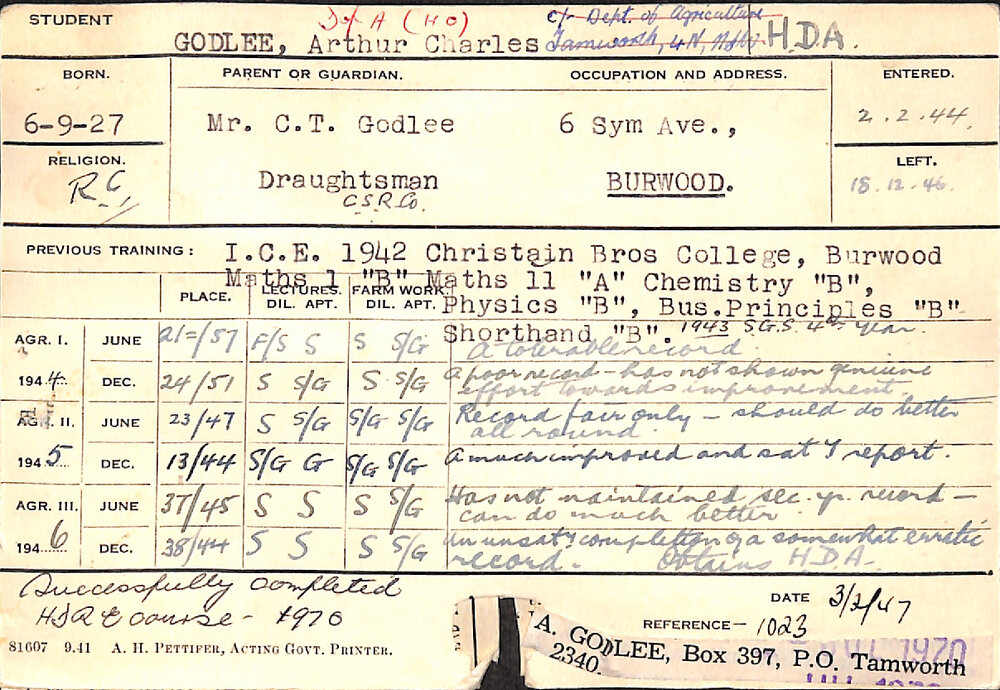 STUDENT D of A (HC) c/- Dept. of Agriculture
GODLEE, Arthur Charles Tamworth, 4N, NSW H.D.A.
BORN. PARENT OR GUARDIAN. OCCUPATION AND ADDRESS. ENTERED.
6-9-27 Mr. C.T. Godlee 6 Sym Ave., 2.2.44.
RELIGION. LEFT.
R.C. Draughtsman BURWOOD. 18.12.46.
C.S.R. Co.
PREVIOUS TRAINING: I.C.E. 1942 Christain Bros College, Burwood
Maths 1 "B" Maths 11 "A" Chemistry "B",
PLACE. LECTURES. DIL. APT. FARM WORK. DIL. APT. Physics "B", Bus.Principles "B"
Shorthand "B". 1943 S.G.S. 4th year.
AGR. I. JUNE 21=/57 F/S S S S/G A tolerable record.
1944. DEC. 24/51 S S/G S S/G A poor record - has not shown genuine
effort towards improvement.
AGR. II. JUNE 23/47 S S/G S/G S/G Record fair only - should do better
all round.
1945 DEC. 13/44 S/G G S/G S/G A much improved and sat y report.
AGR. III. JUNE 37/45 S S S S/G Has not maintained sec. yr. record -
can do much better.
1946 DEC. 38/44 S S S S/G An unsaty completion of a somewhat erratic
record. Obtains H.D.A.
Successfully completed
HDA E course - 1970
DATE 3/2/47
REFERENCE- 1023
81607 9.41 A. H. PETTIFER, ACTING GOVT. PRINTER.
A. GODLEE, Box 397, P.O. Tamworth
2340.
1970